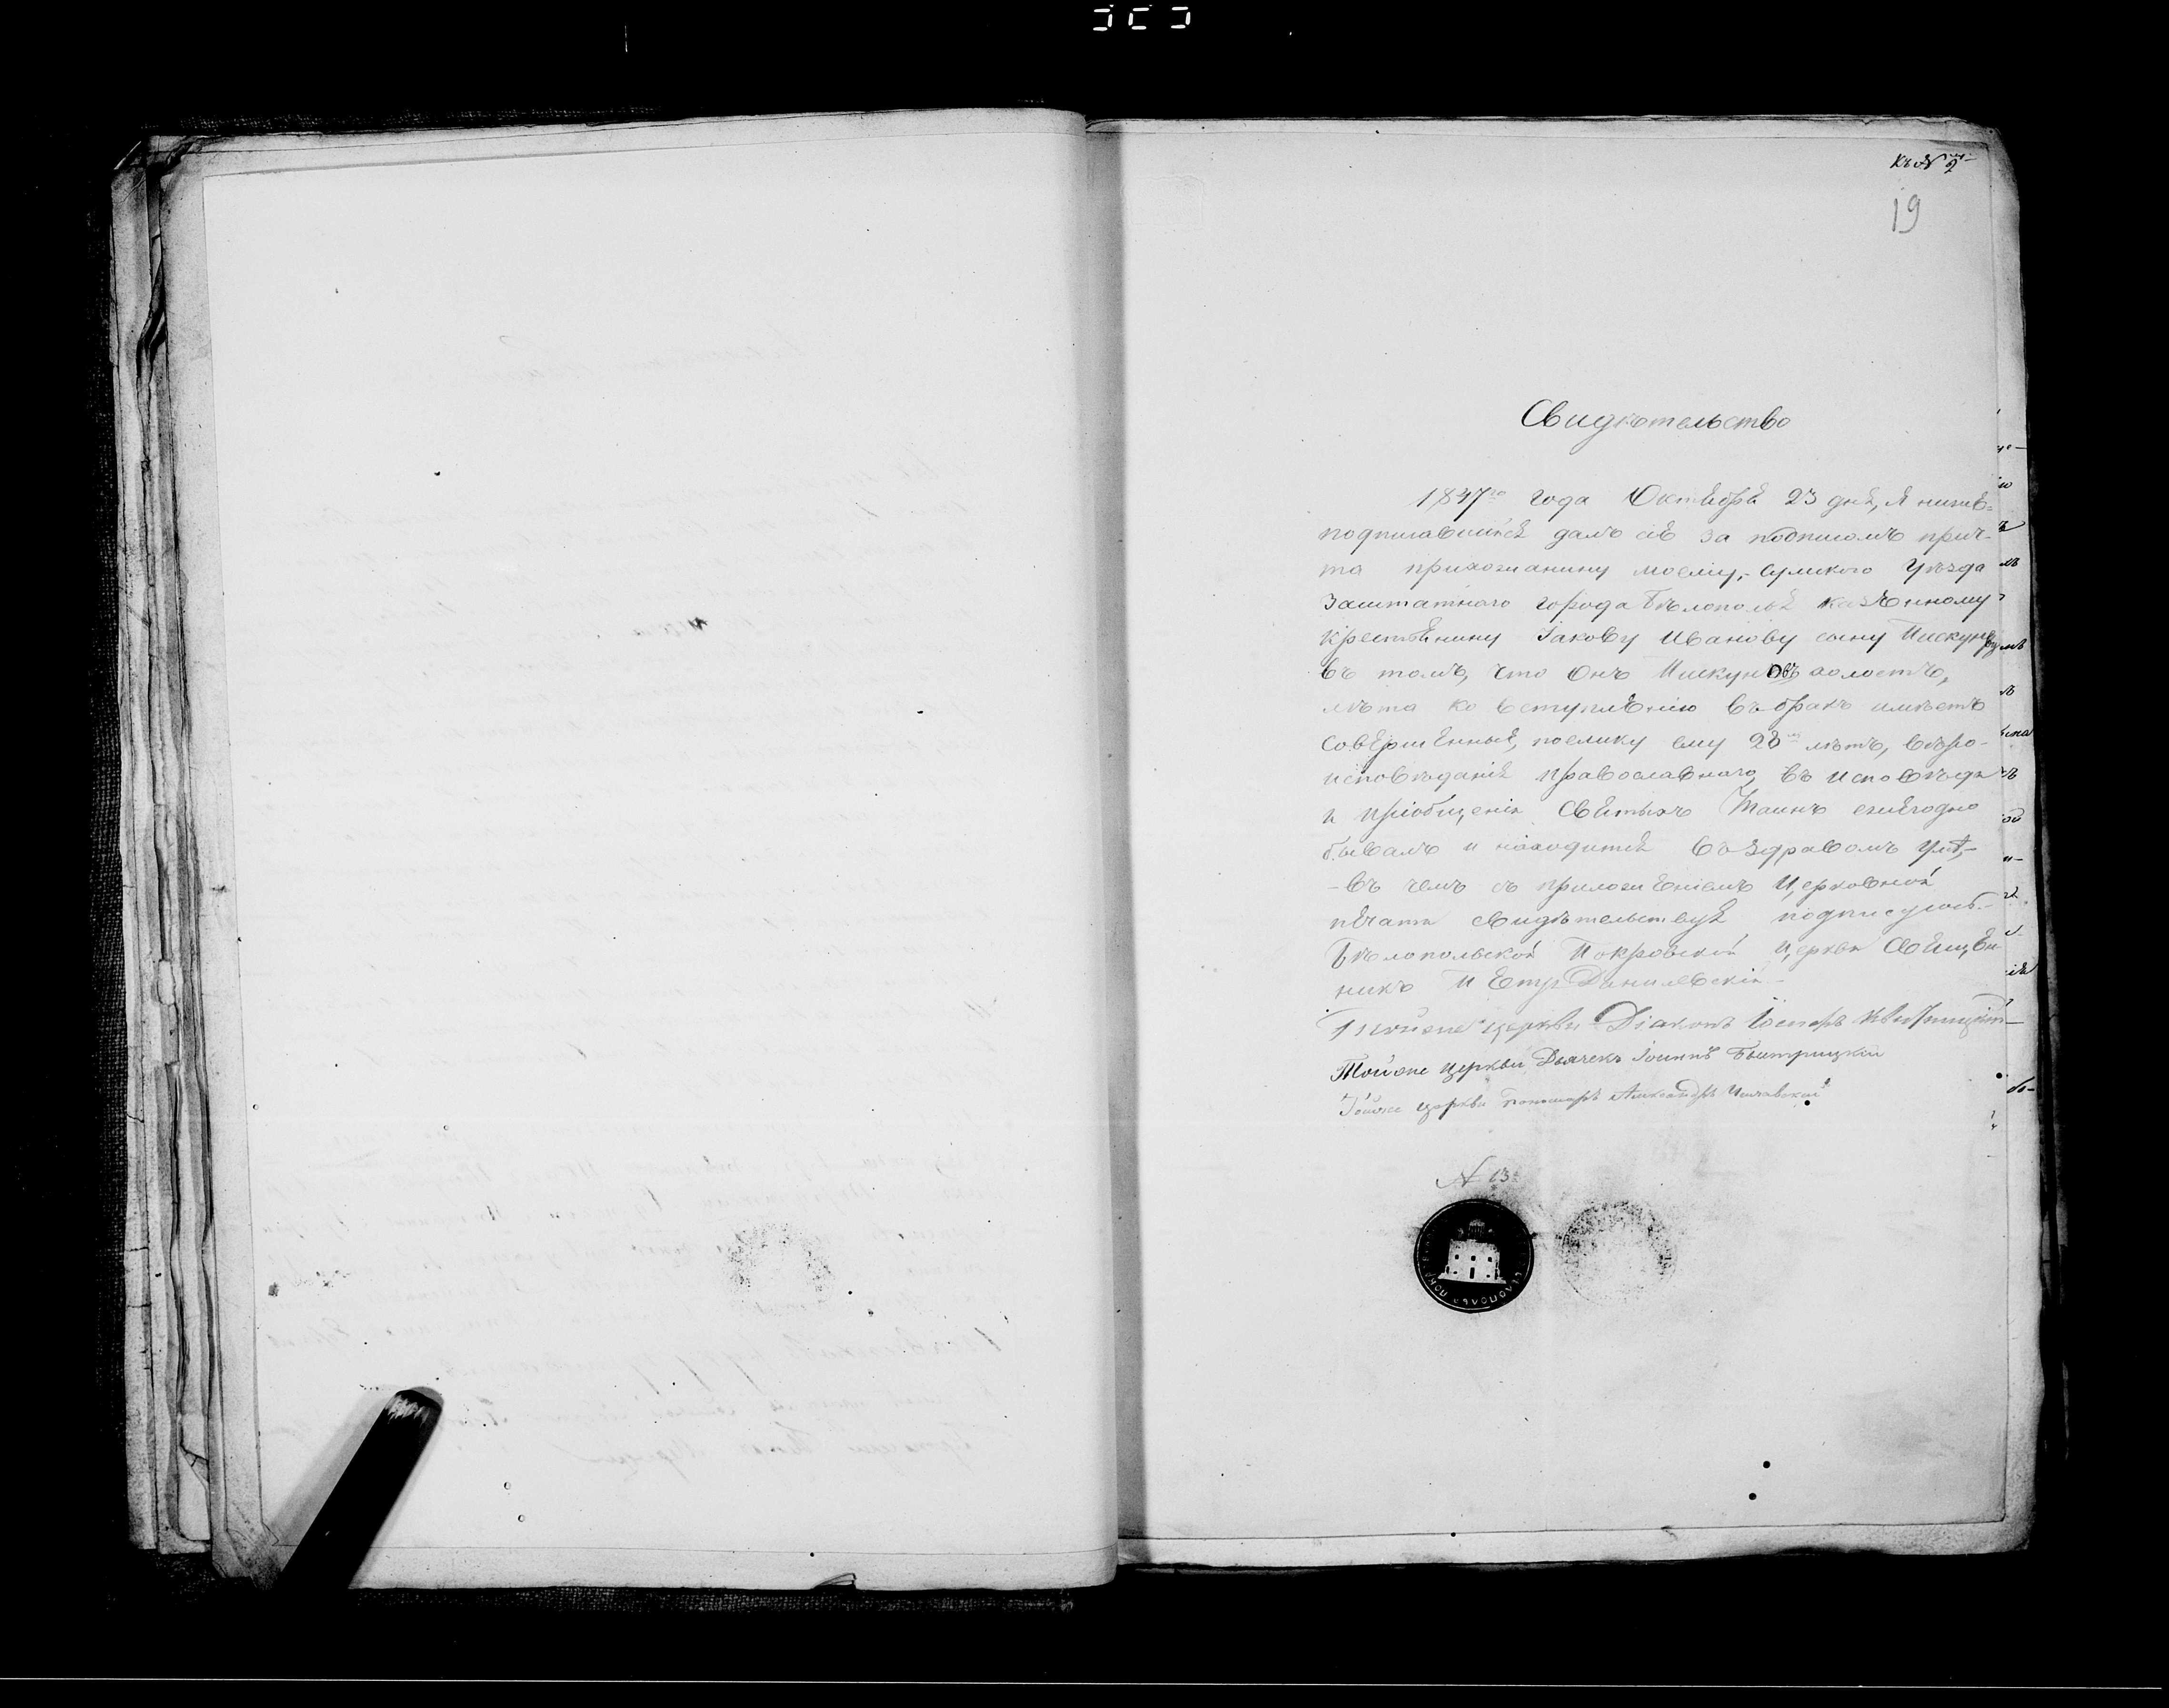 Къ № 2
19
Свидѣтельство
1847го года Октября 23 дня, я ниже-
подписавшійся далъ сіе за подписомъ прич-
та прихожанину моему, Сумскаго Уѣзда
Заштатнаго города Бѣлополья казенному
крестьянину Іакову Иванову сыну Пискунову
въ томъ, что онъ Пискуновъ холостъ,
лѣта ко вступленію въ бракъ имѣетъ
совершенныя, поелику ему 28 лѣтъ, вѣро-
исповѣданія православнаго, въ исповѣди
и пріобщеніи Святыхъ Таинъ ежегодно
бывалъ и находится въ здравомъ умѣ,-
-въ чемъ съ приложеніемъ церковной
печати свидѣтельствуя подписуюсь.-
Бѣлопольской Покровской церкви Священ
никъ Петръ Данилевскій.-
Тойже церкви Діаконъ
Тойже церкви Дьячекъ Іоаннъ Быстрицкій
Тойже церкви пономарь Александръ
№ 13